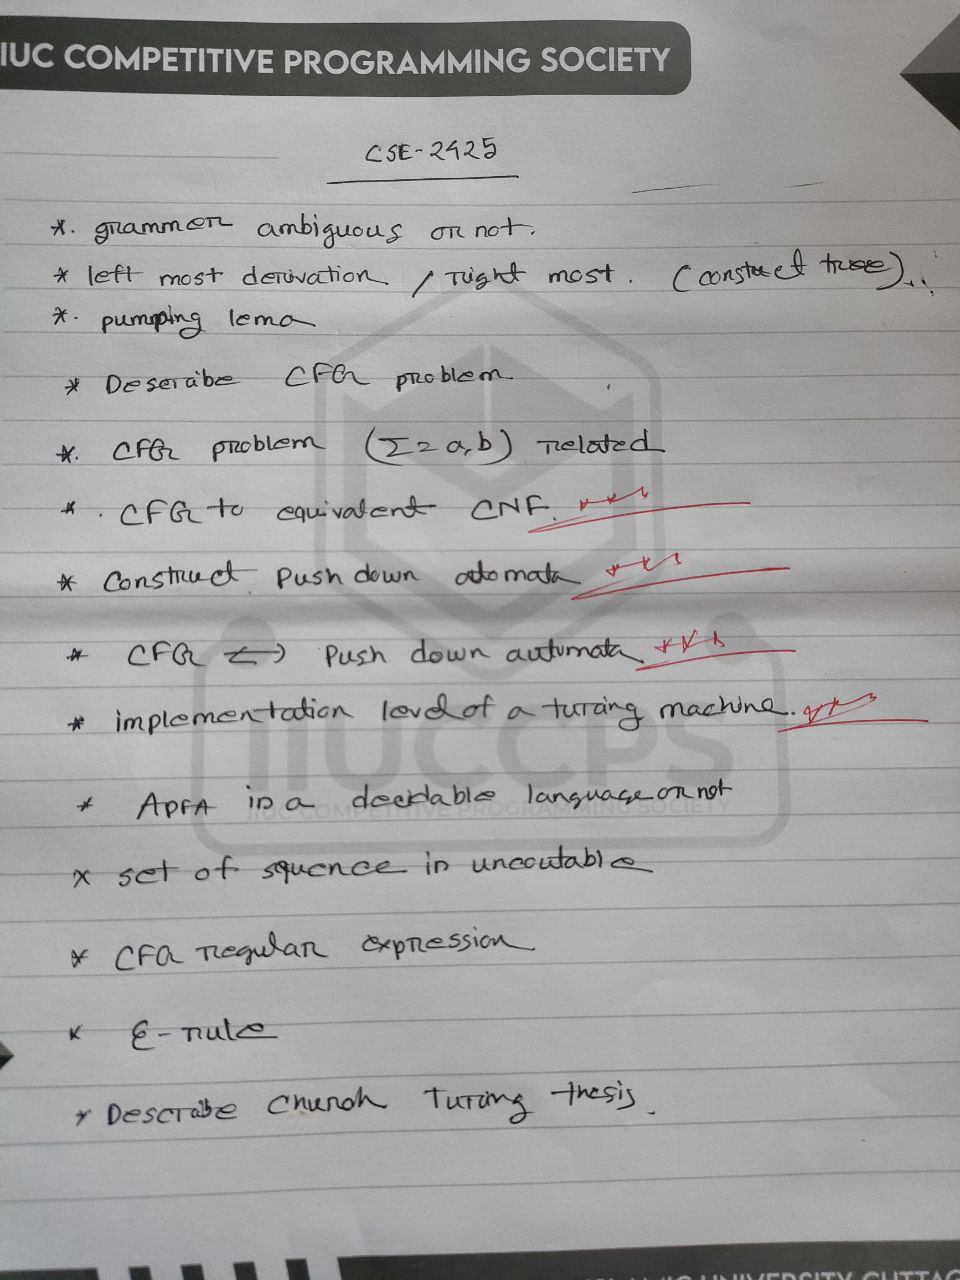 IUC COMPETITIVE PROGRAMMING SOCIETY
CSE-2425
*. grammer ambiguous or not.
* left most derivation / right most. (construct tree)...
*. pumping lema
* Describe CFG problem
*. CFG problem (Σ = a, b) related
* . CFG to equivalent CNF.
* Construct Push down atomata
* CFG ↔ Push down automata
* implementation level of a turing machine.
* ADFA is a decidable language or not
* set of squence is uncoutable
* CFG regular expression
* ε - rule
* Describe Church Turing thesis.
IIUCCPS
IIUC COMPETITIVE PROGRAMMING SOCIETY
UNIVERSITY CHITTAG